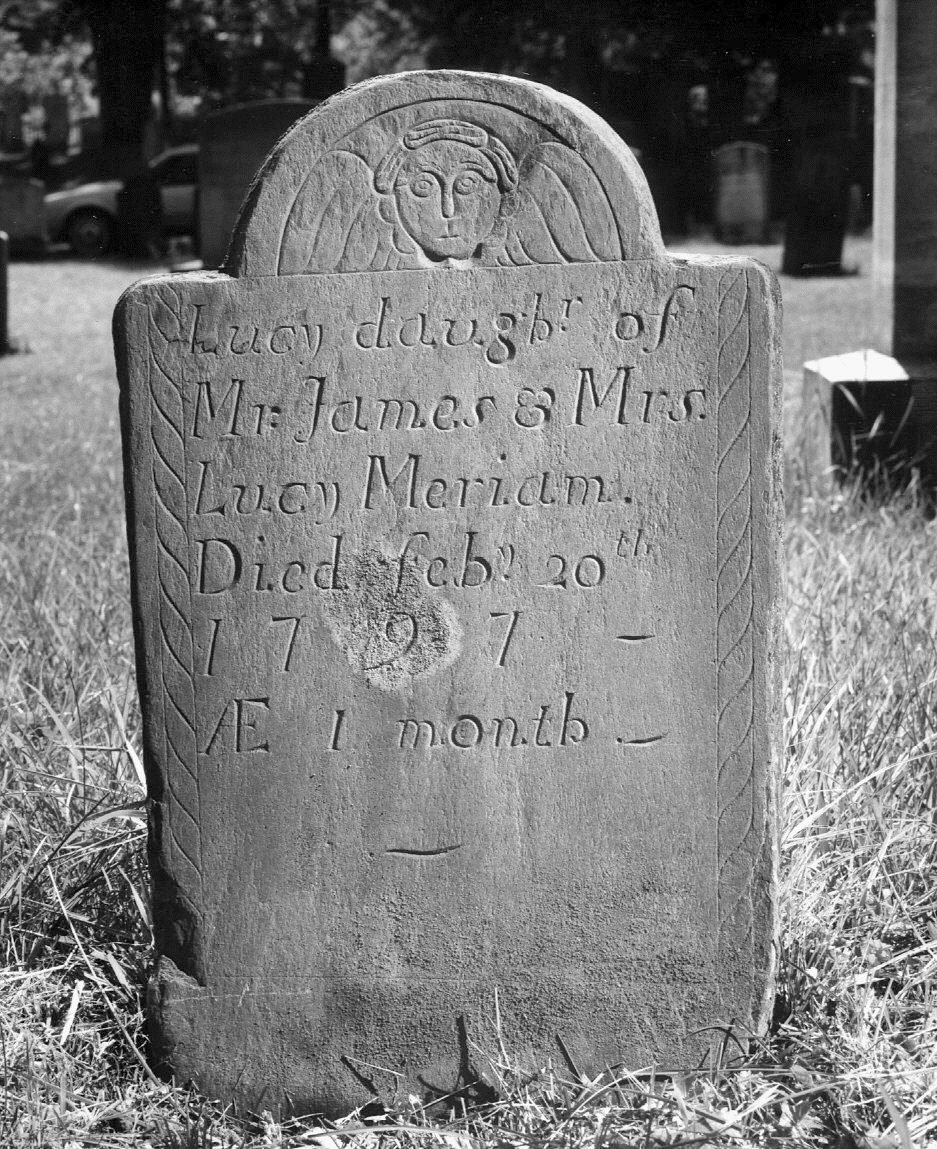 Lucy daughr. of
Mr. James & Mrs.
Lucy Meriam.
Died feby. 20th
1797 –
Æ 1 month –
–